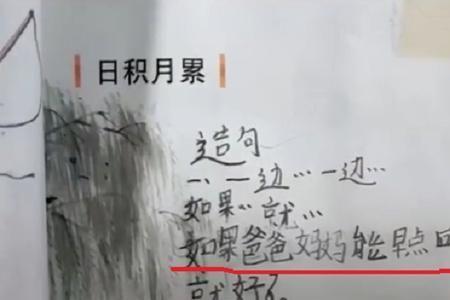 日积月累
造句
一、一边…一边…
如果…就…
如果爸爸妈妈能早点回
就好了